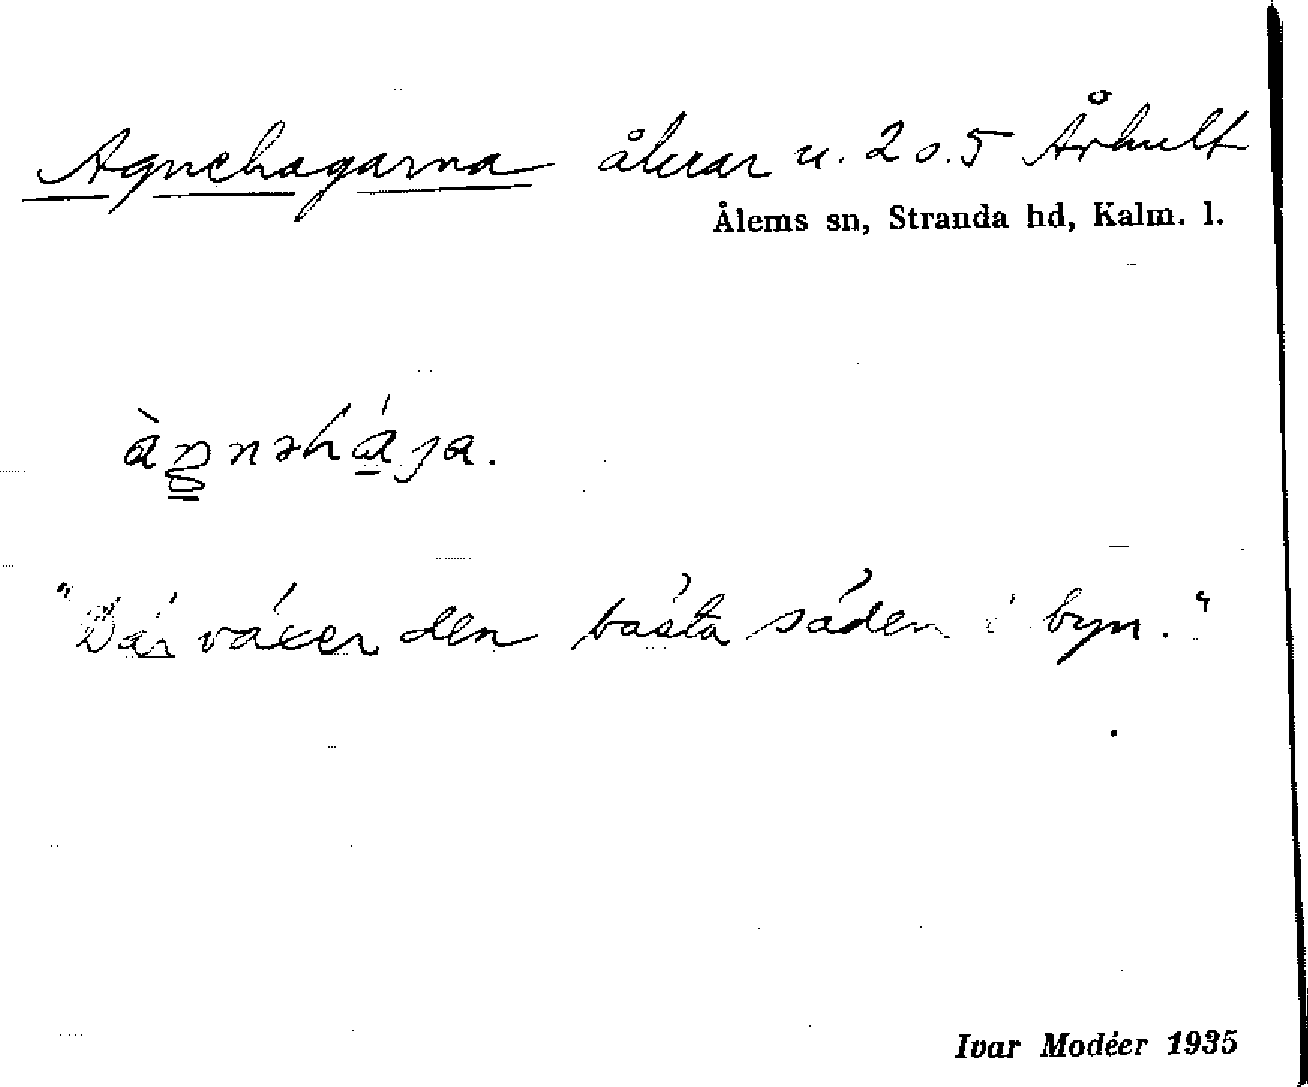 Agnehagarna åkrar u. 2 o. 5 Århult
Ålems sn, Stranda hd, Kalm. l.
àŋnəháɡa.
"Där växer den bästa säden i byn."
Ivar Modéer 1935